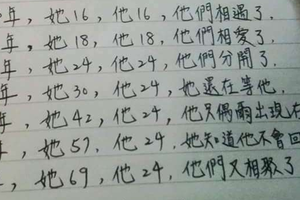 年，她16，他16，他們相遇了.
年，她18，他18，他們相愛了.
年，她24，他24，他們分開了.
年，她30，他24，她還在等他.
年，她42，他24，他只偶爾出現在
，她57，他24，她知道他不會回
，她69，他24，他們又相聚了